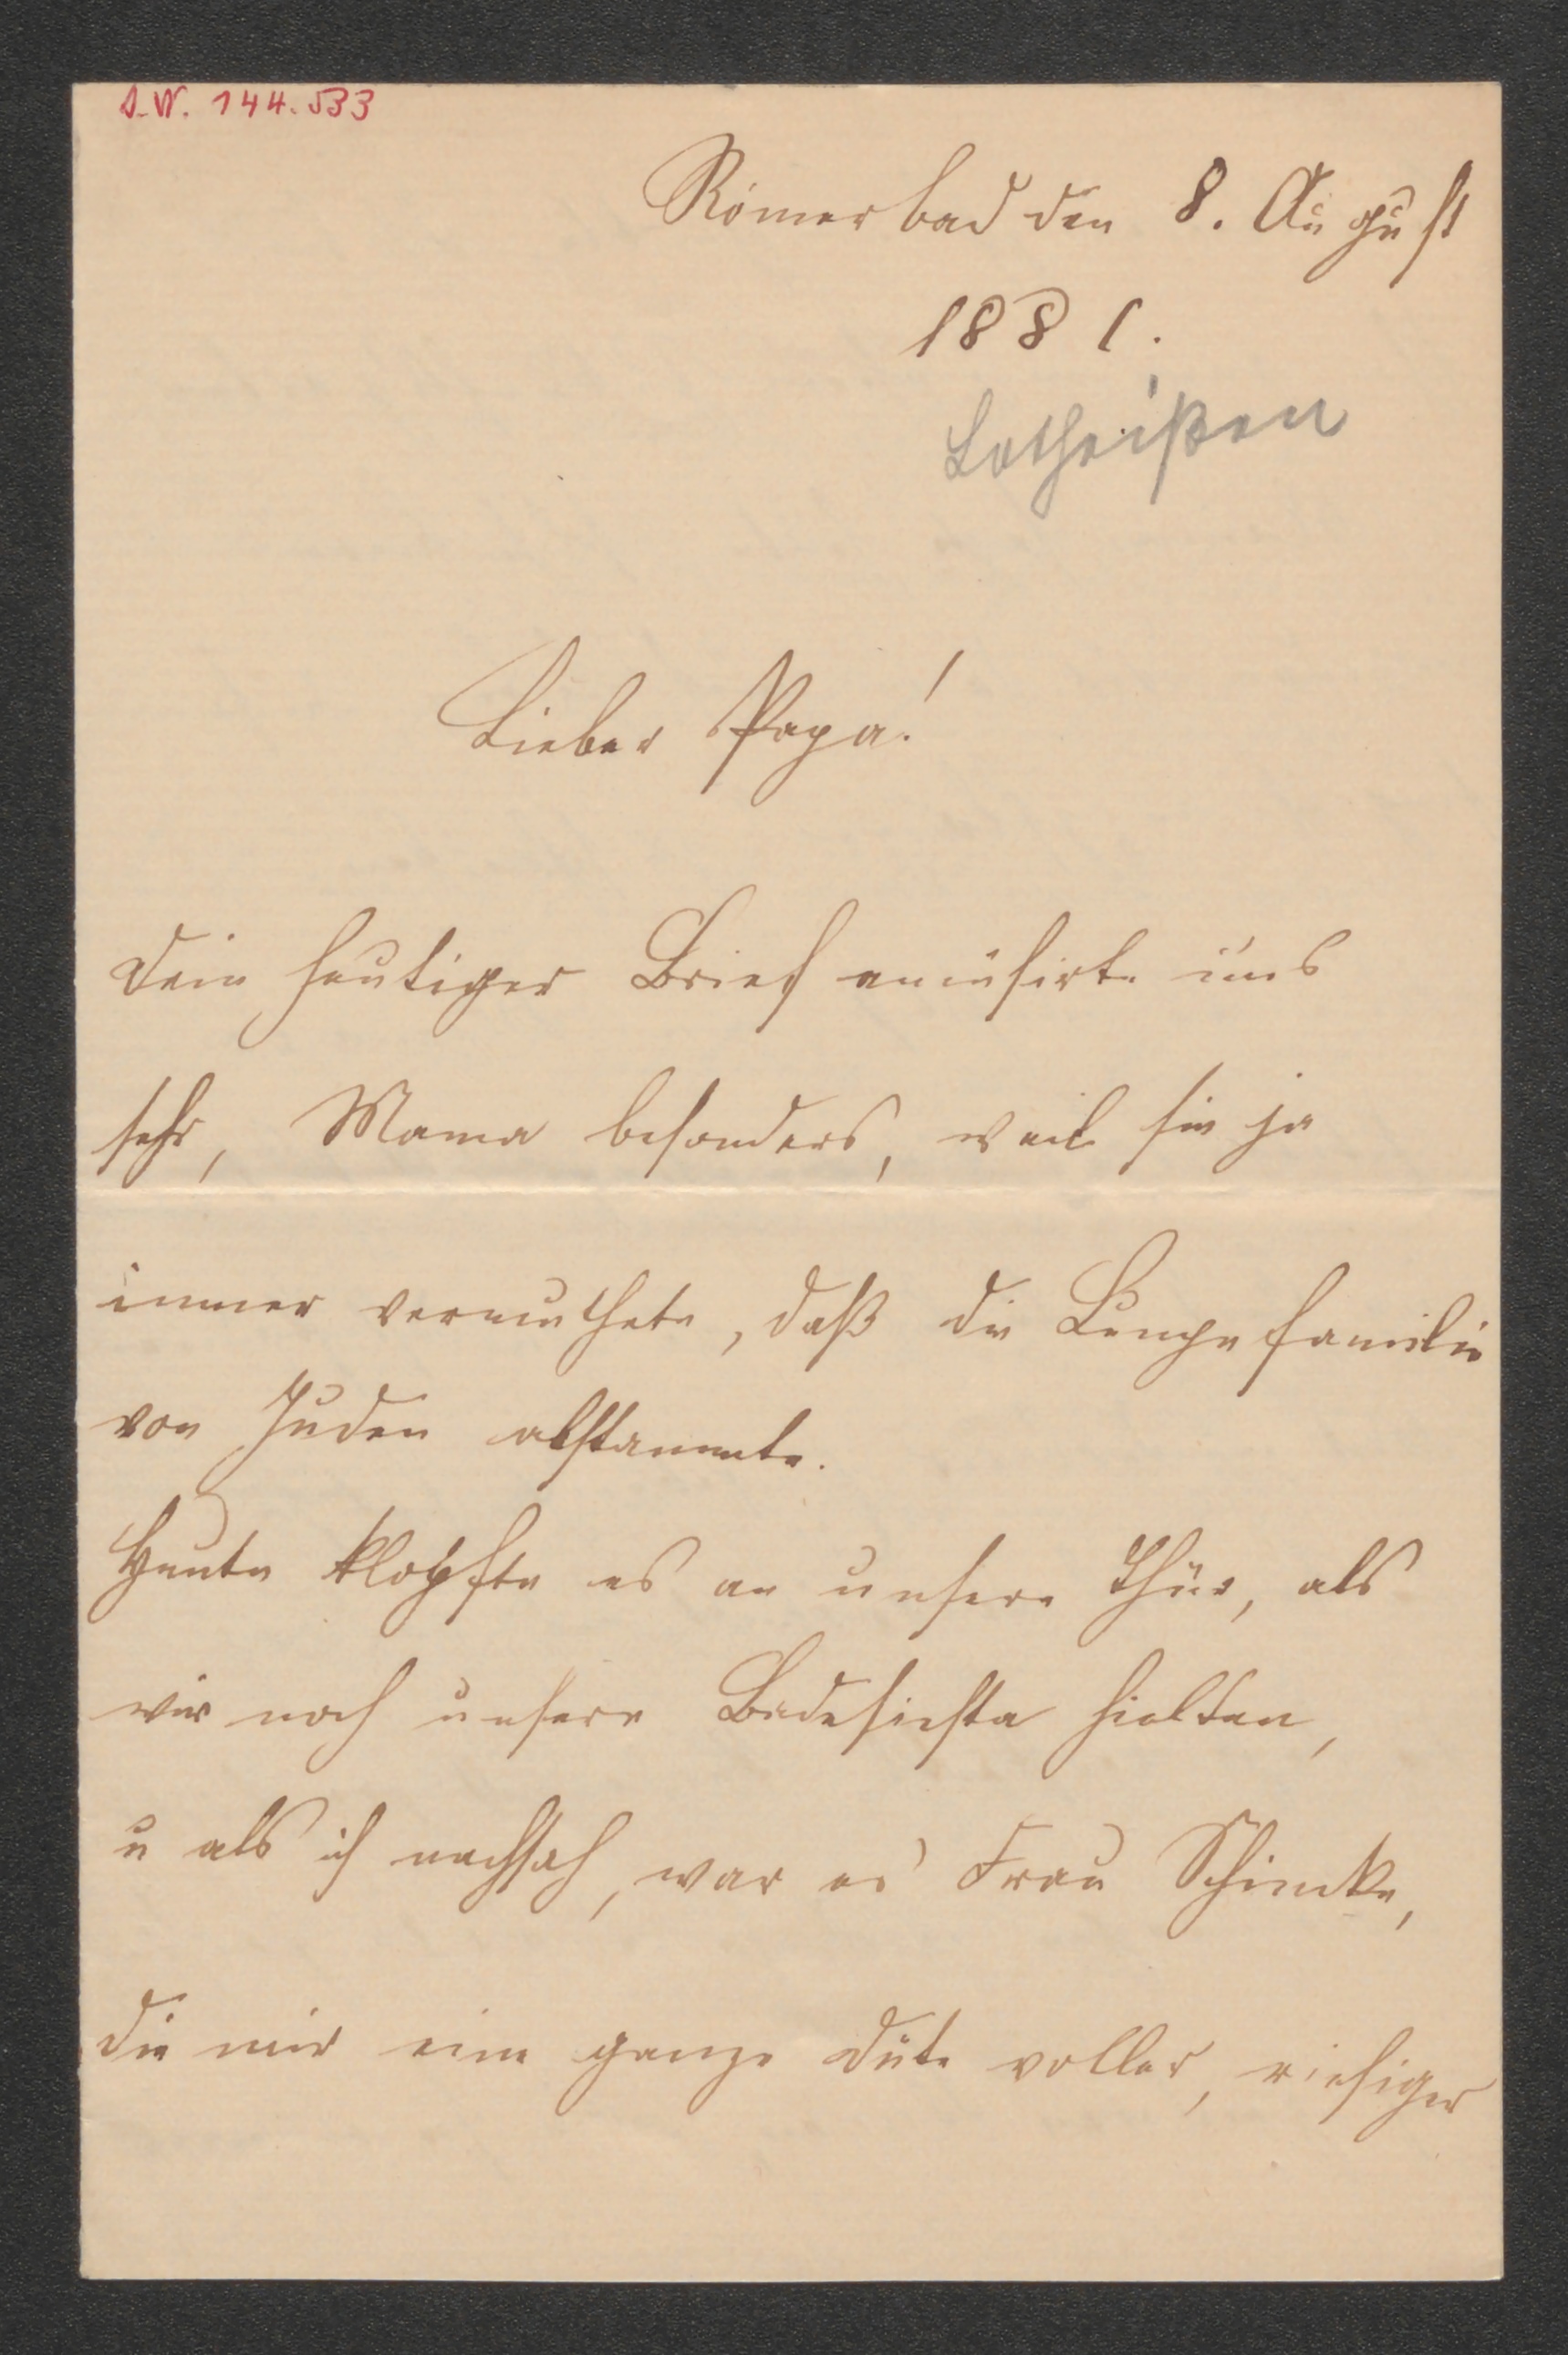 I.N. 144.533
Römerbad den 8. August
1881.
Lotheißen
Lieber Papa!
Dein heutiger Brief amüsirte uns
sehr, Mama besonders, weil sie ja
immer vermuthete, daß die Langefamilie
von Juden abstammte.
Heute klopfte es an unsere Thür, als
wir noch unsere Badesiesta hielten,
u als ich nachsah, war es Frau Schimke,
die mir eine ganze Düte voller, riesiger